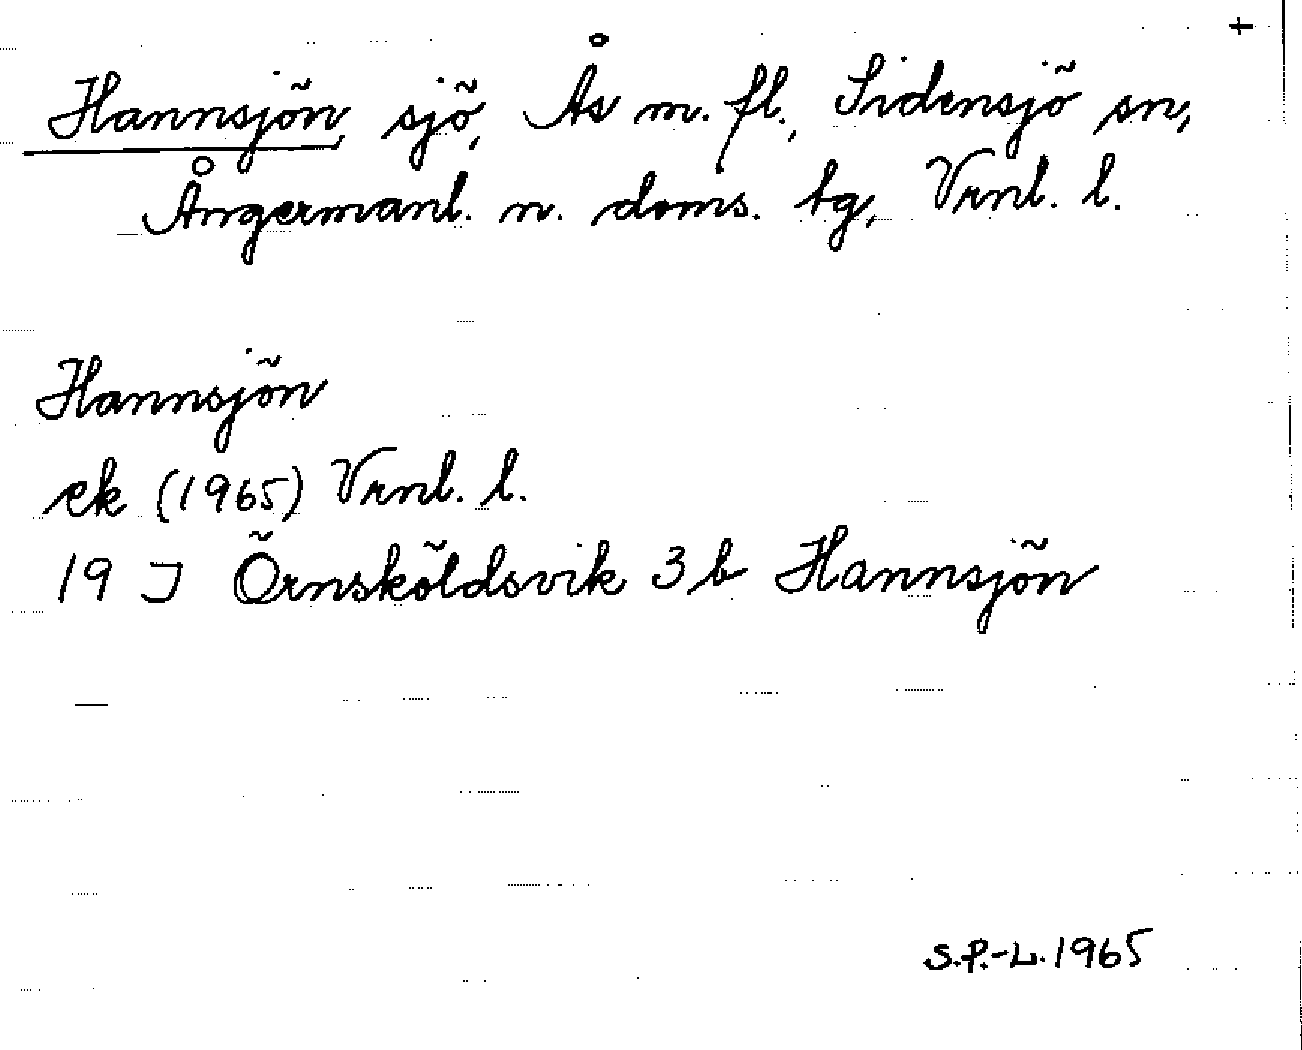 +
Hannsjön, sjö, Ås m. fl., Sidensjö sn,
Ångermanl. n. doms. tg, Vrnl. l.
Hannsjön
ek (1965) Vrnl. l.
19 J Örnsköldsvik 3 b Hannsjön
S.P.-L. 1965